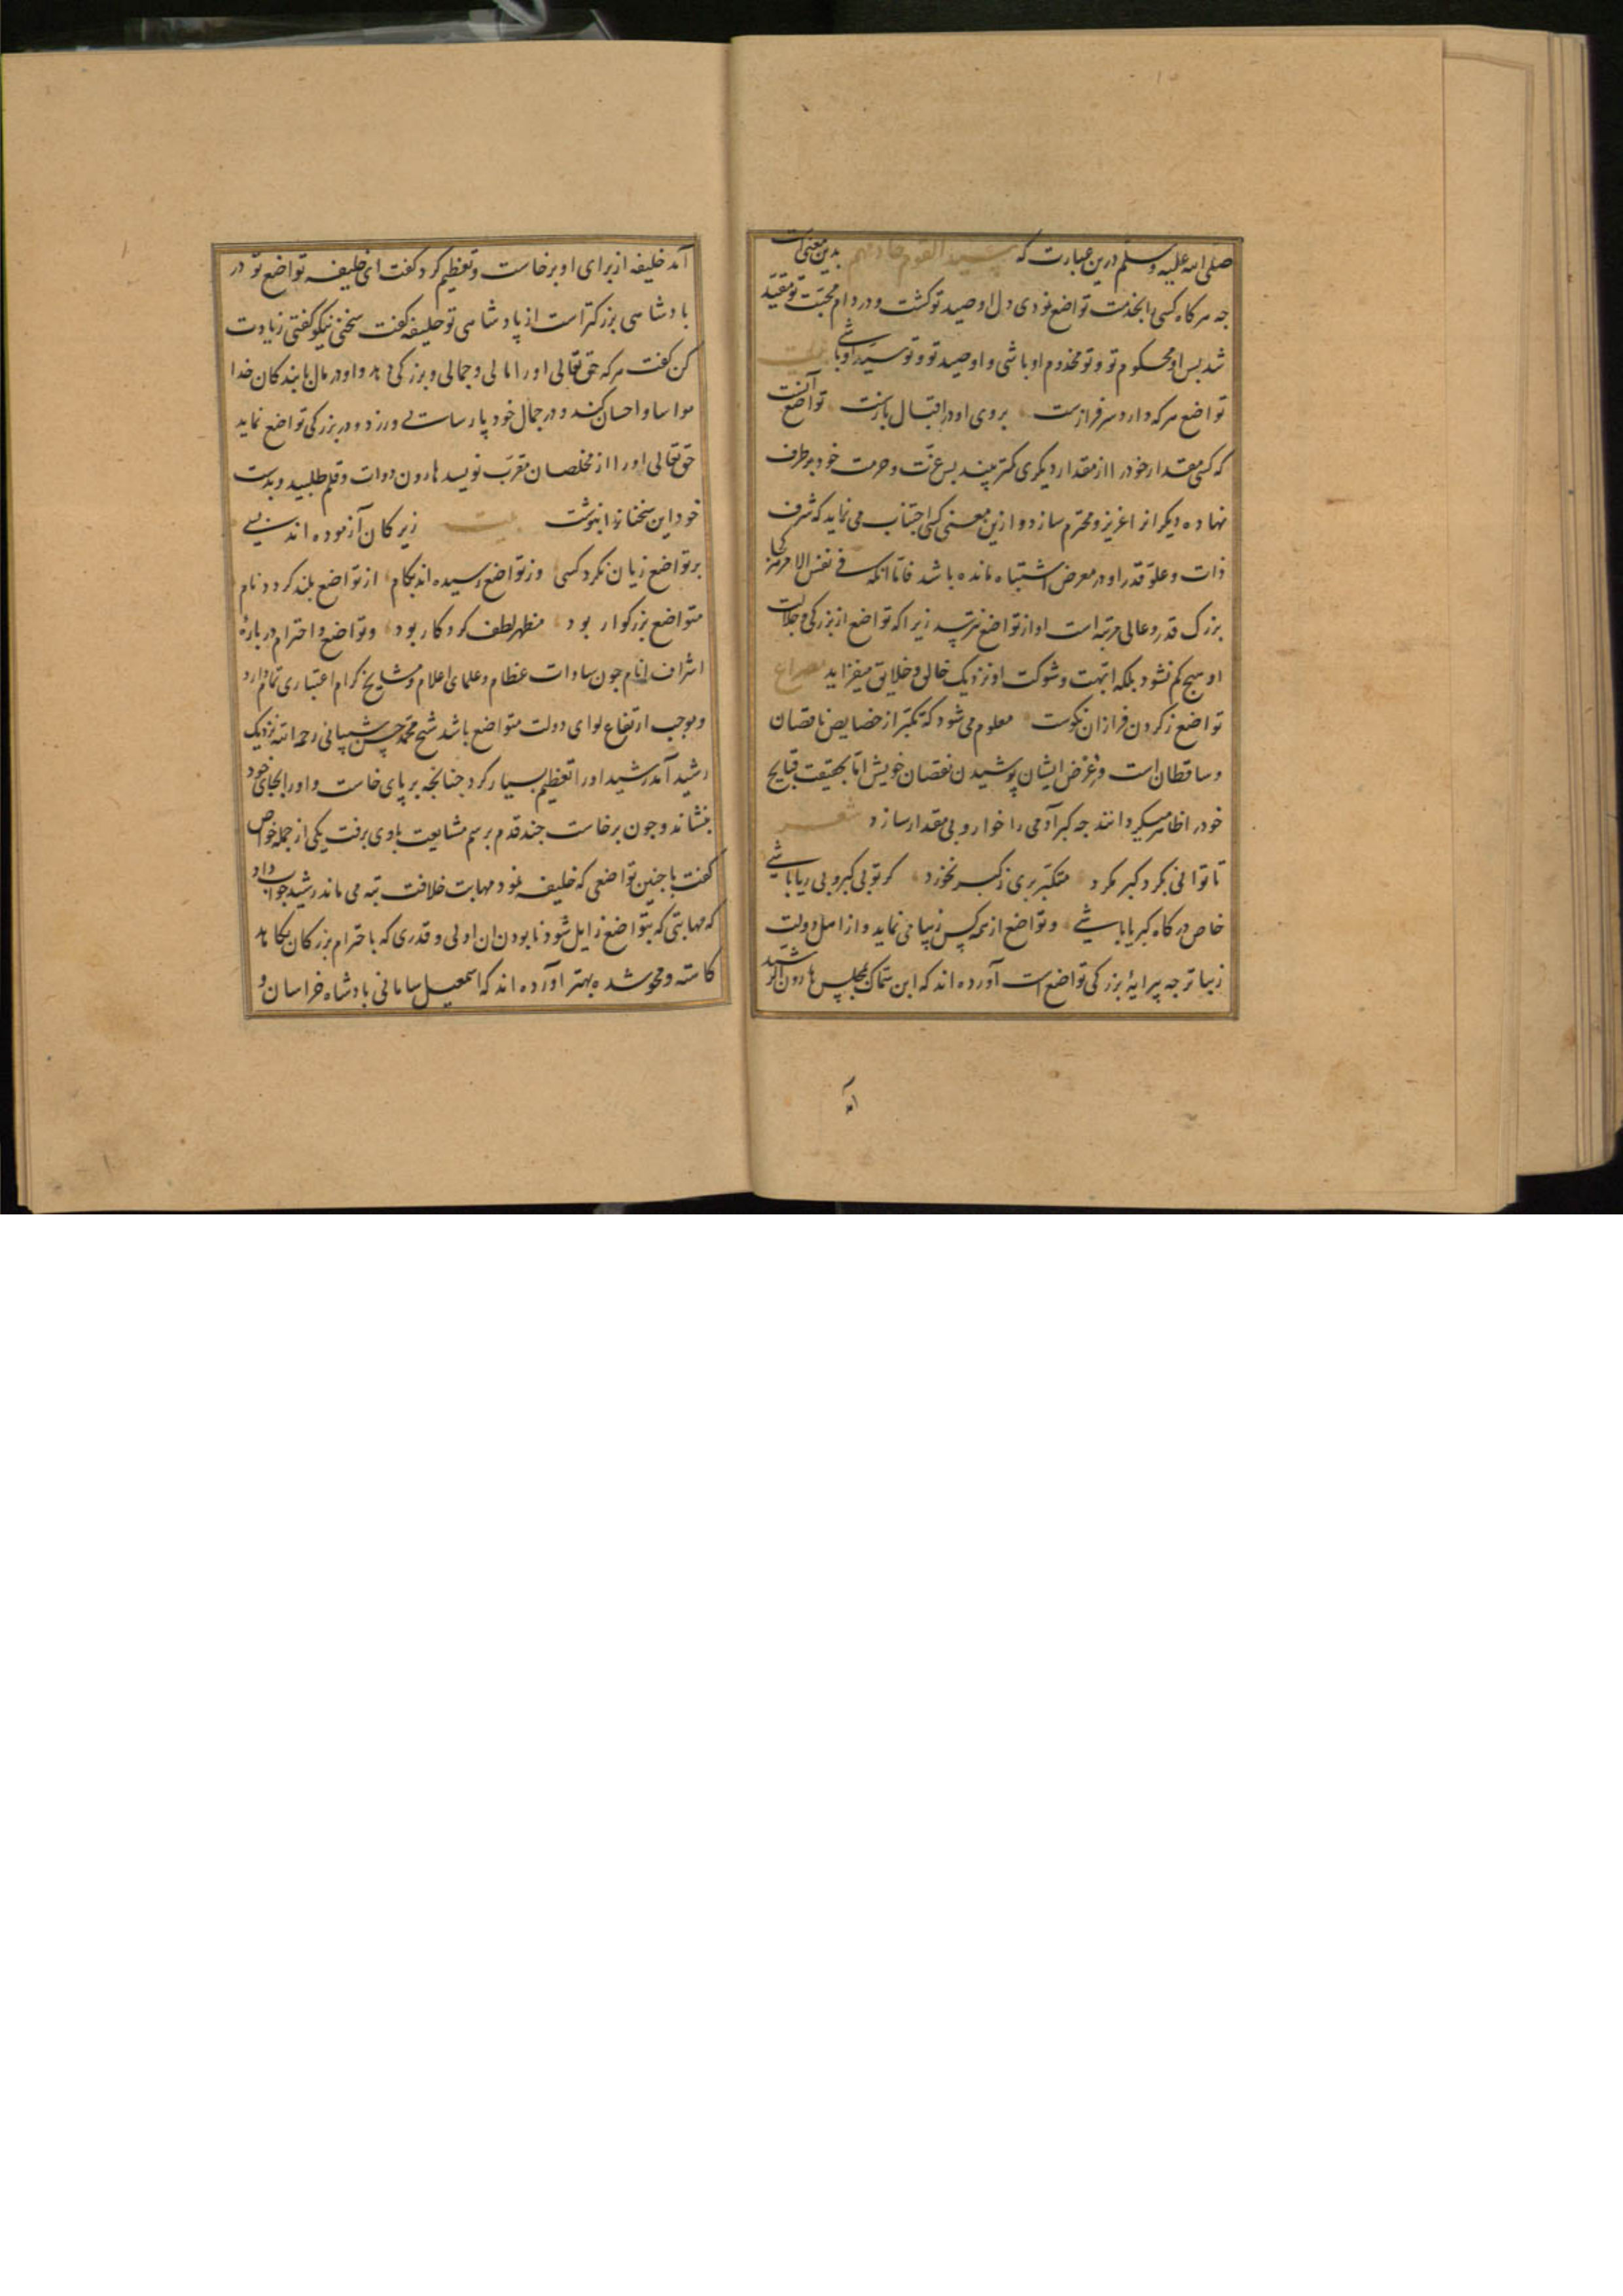 صلی الله علیه وسلم درین عبارت که سید القوم خادمهم بدین معنی است
جه هر کاه کسی را بخدمت تواضع نمودی دل او صید تو کشت و در دام محبت تو مقید
شد بس او محکوم تو و تو مخدوم او باشی و او صید تو و تو سید او باشی بیت
تواضع هر که دارد سرفرازست بروی او در اقبال بازست تواضع آنست
که کسی مقدار خود را از مقدار دیکری کمتر بیند بس عزت و حرمت خود بر طرف
نهاده دیکرانرا عزیز و محترم سازد و ازین معنی کسی اجتناب می نماید که شرف
ذات و علو قدر او در معرض اشتباه مانده باشد فاما انکه فی نفس الامر
بزرک قدر و عالی مرتبه است او از تواضع نترسد زیرا که تواضع از بزرکی و جلالت
او هیج کم نشود بلکه ابهت و شوکت او نزدیک خالق و خلایق میفزاید مصراع
تواضع ز کردن فرازان نکوست معلوم می شود که تکبر از خصایص ناقصان
و ساقطان است و غرض ایشان پوشیدن نقصان خویش اما بحقیقت قبایح
خود را ظاهر میکردانند جه کبر آدمی را خوار و بی مقدار سازد شعر
تا توانی بکرد کبر مکرد متکبر بری ز کبر نخورد کر تو بی کبر و بی ریا باشی
خاص درکاه کبریا باشی و تواضع از همه کس زیبا می نماید و از اهل دولت
زیباتر جه پیرایهٔ بزرکی تواضع است آورده اند که ابن سماک بمجلس هارون الرشید
آمد
آمد خلیفه از برای او برخاست و تعظیم کرد کفت ای خلیفه تواضع تو در
بادشاهی بزرکتر است از پادشاهی تو خلیفه کفت سخنی نیکو کفتی زیادت
کن کفت هر که حق تعالی او را مالی و جمالی و بزرکی دهد و او در مال با بندکان خدا
مواسا و احسان کند و در جمال خود پارسایی ورزد و در بزرکی تواضع نماید
حق تعالی او را از مخلصان مقرب نویسد هارون دوات و قلم طلبید و بدست
خود این سخنانرا بنوشت بیت زیرکان آزموده اند بسی
بر تواضع زیان نکرد کسی وز تواضع رسیده اند بکام از تواضع بلند کردد نام
متواضع بزرکوار بود مظهر لطف کردکار بود و تواضع و احترام در بارهٔ
اشراف انام جون سادات عظام و علمای اعلام و مشایخ کرام اعتباری تمام دارد
و موجب ارتفاع لوای دولت متواضع باشد شیخ محمد حسن شیبانی رحمه الله نزدیک
رشید آمد رشید او را تعظیم بسیار کرد جنانجه بر پای خاست و او را بجای خود
بنشاند و جون برخاست جند قدم برسم مشایعت باوی برفت یکی از جمله خواص
کفت با جنین تواضعی که خلیفه نمود مهابت خلافت تبه می ماند رشید جواب داد
که مهابتی که بتواضع زایل شود نابودن ان اولی و قدری که باحترام بزرکان بکاهد
کاسته و محو شده بهتر آورده اند که اسمعیل سامانی بادشاه خراسان و